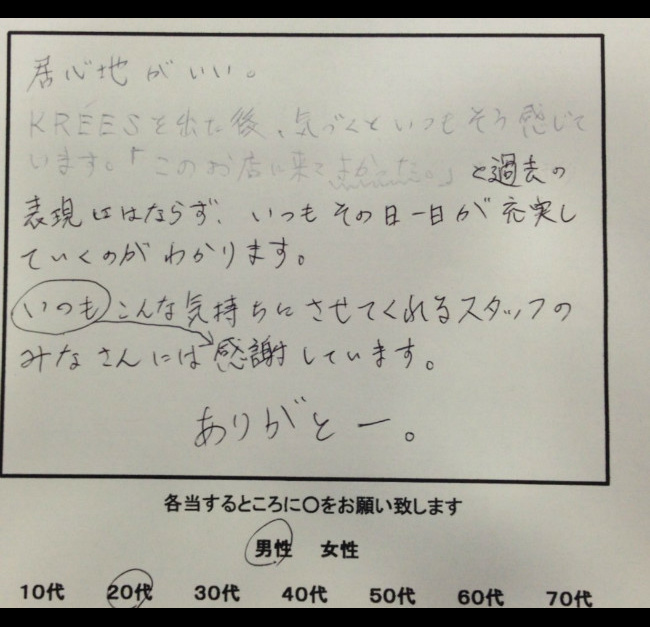 居心地がいい。
KREESを出た後、気づくといつもそう感じて
います。「このお店に来てよかった。」と過去の
表現にはならず、いつもその日一日が充実し
ていくのがわかります。
いつもこんな気持ちにさせてくれるスタッフの
みなさんには感謝しています。
ありがとー。
各当するところに〇をお願い致します
男性 女性
10代 20代 30代 40代 50代 60代 70代